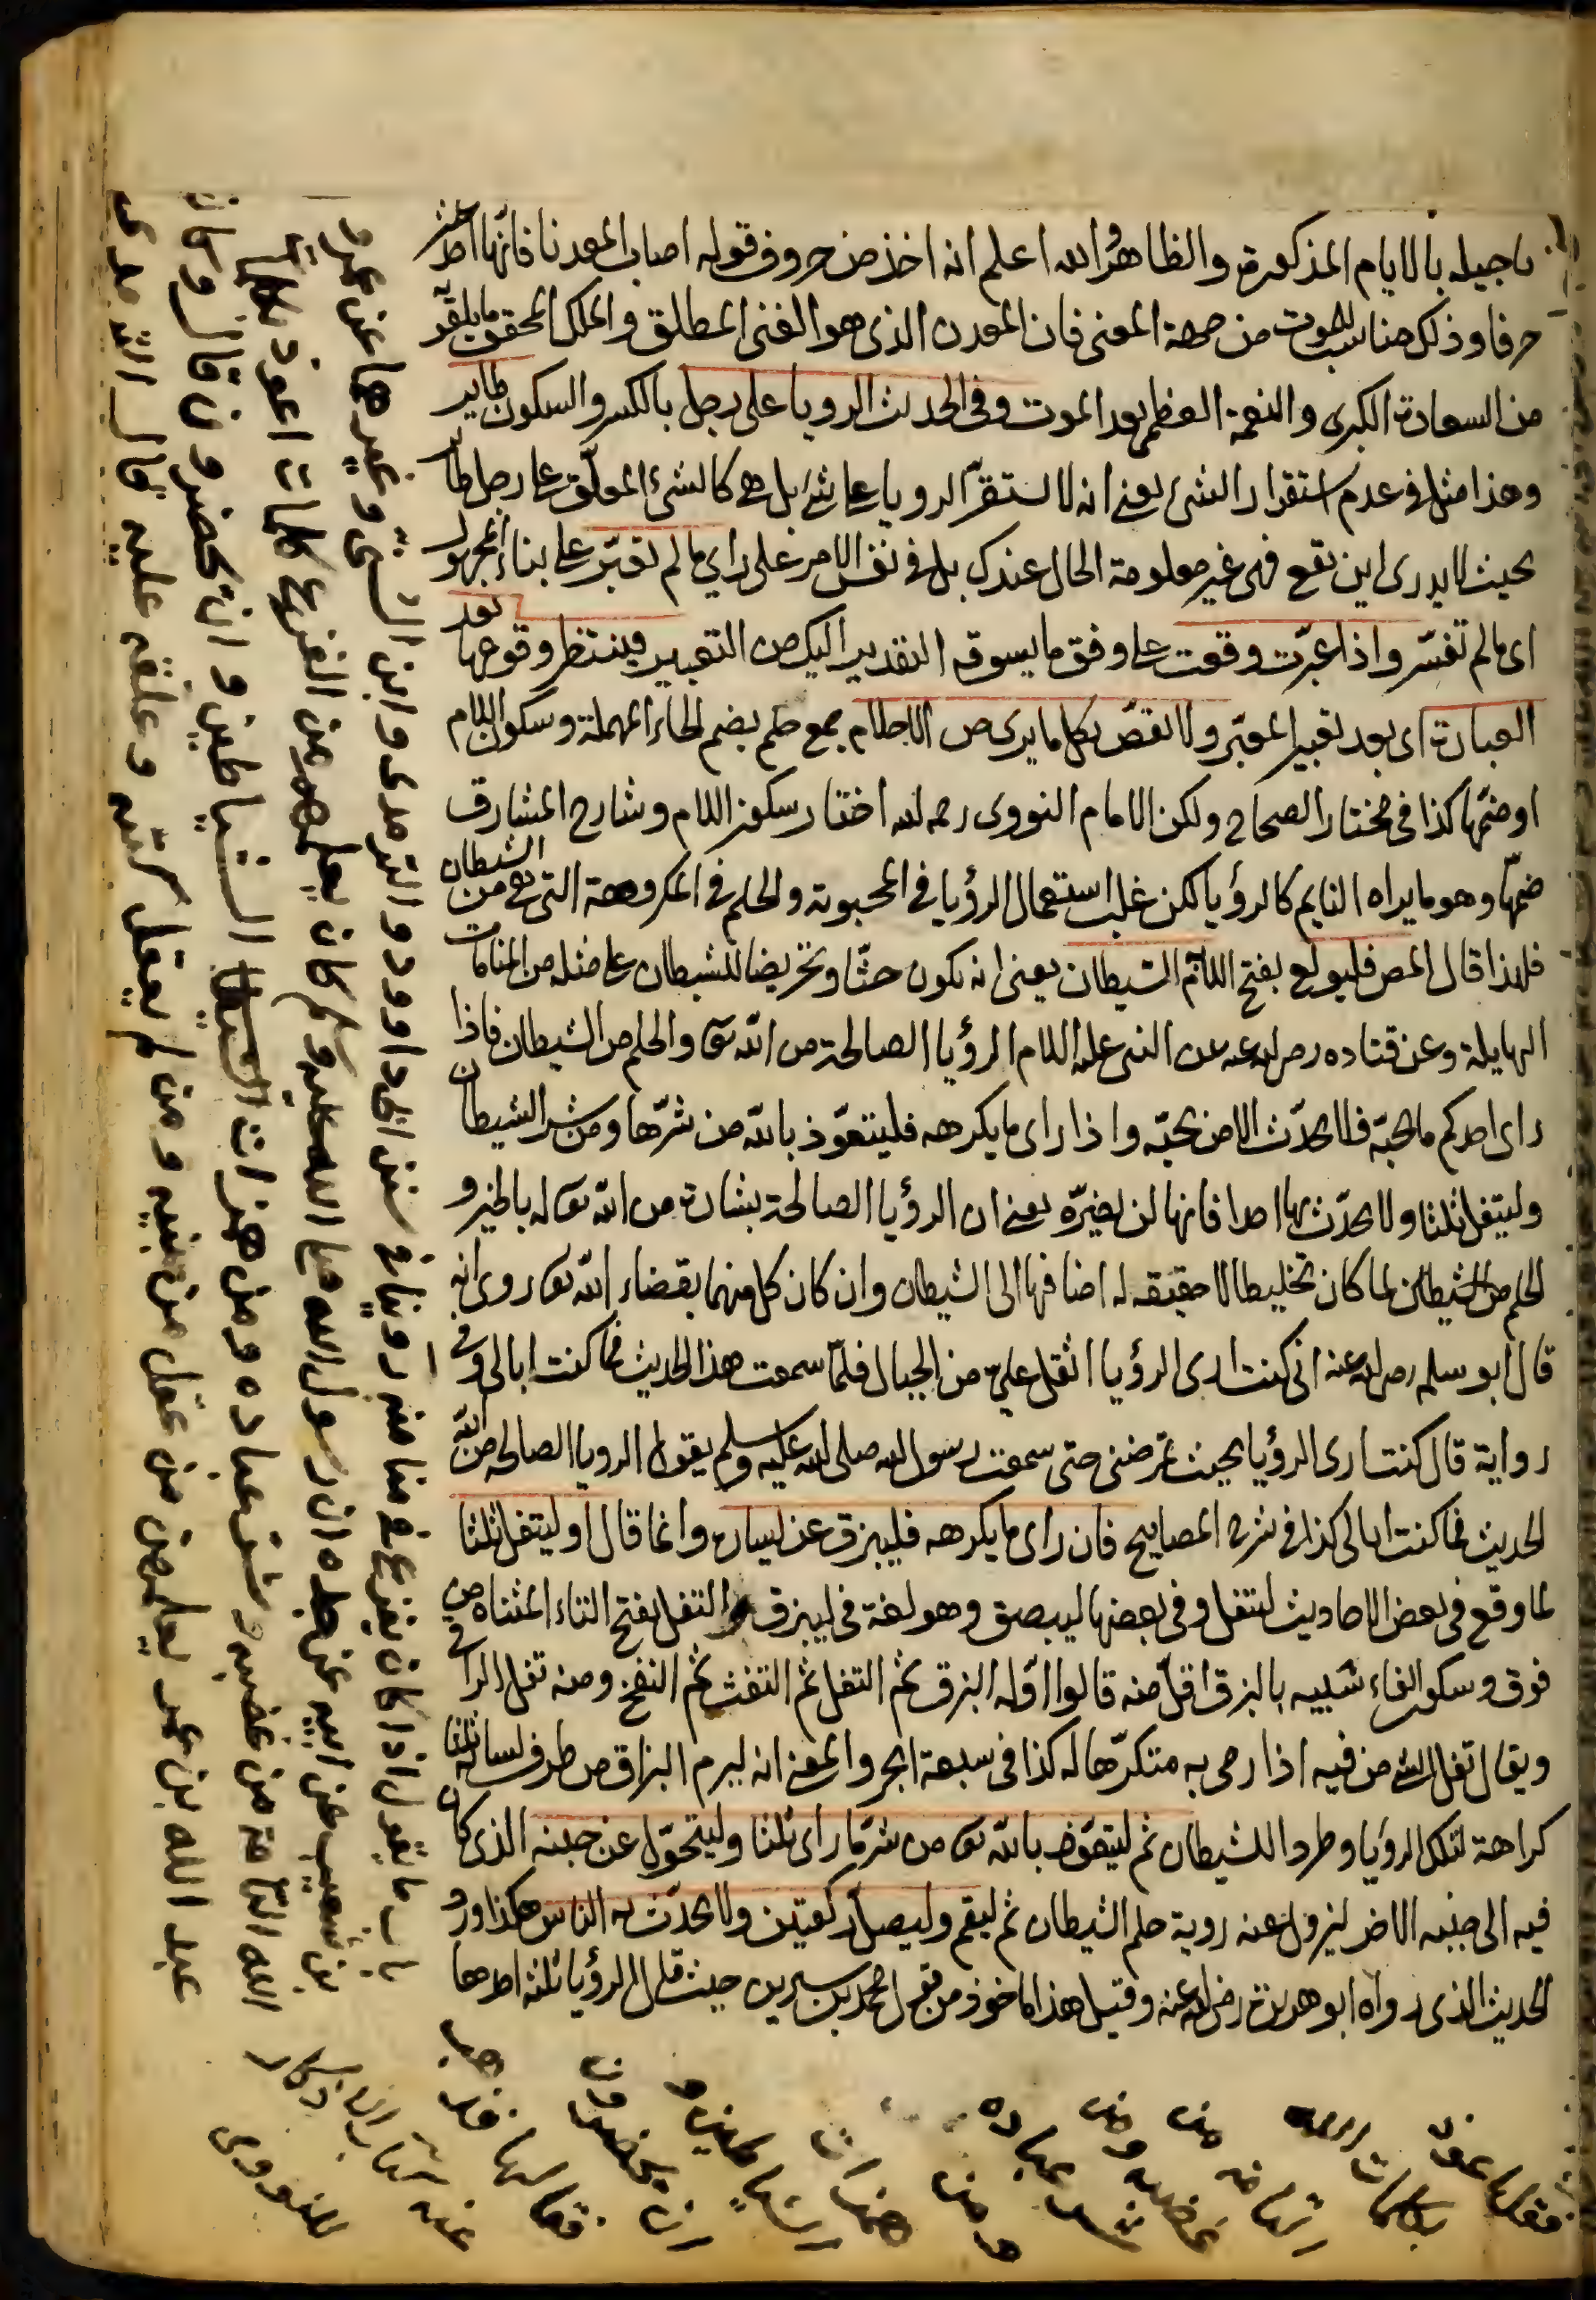 بالايام المذكورة والظاهر والله اعلم انه اخذ من حروف قوله اصاب المعدنا فانها احد عشر
حرفا وذلك مناسب للموت من جهة المعنى فان المعدن الذى هو الغنى المطلق والملك المحقق ما يلقى
من السعادة الكبرى والنعمة العظمى بعد الموت وفى الحديث الرويا على رجل بالكسر والسكون طاير
وهذا مثل فى عدم استقرار الشئ يعنى انه لا تستقر الرويا على شئ بل هى كالشئ المعلق على رجل طاير
بحيث لا يدرى اين تقع فهى غير معلومة الحال عندك بل فى نفس الامر على راى ما لم تعبر على بناء المجهول
اى ما لم تفسر واذا عبرت وقعت على وفق ما يسوقه التقدير اليك من التعبير فينتظر وقوعها بعد
العبارة اى بعد تعبير المعبر ولا تقص بكل ما يرى من الاحلام جمع حلم بضم الحاء المهملة وسكون اللام
او ضمها كذا فى مختار الصحاح ولكن الامام النووى رحمه الله اختار سكون اللام وشارح المشارق
ضمها وهو ما يراه النايم كالرؤيا لكن غلب استعمال الرؤيا فى المحبوبة والحلم فى المكروهة التى هى من الشيطان
فلهذا قال المص فليولع بفتح اللام الشيطان يعنى انه يكون حثا وتحريضا للشيطان على مثله من المنامات
الهايلة وعن قتاده رضى الله عنه عن النبى عليه السلام الرؤيا الصالحة من الله تعالى والحلم من الشيطان فاذا
راى احدكم ما يحبه فلا يحدث الا من يحبه واذا راى ما يكرهه فليتعوذ بالله من شرها ومن شر الشيطان
وليتفل ثلثا ولا يحدث بها احدا فانها لن يضره يعنى ان الرؤيا الصالحة بشارة من الله تعالى له بالخير و
الحلم من الشيطان لما كان تخليطا لا حقيقة له اضافها الى الشيطان وان كان كل منهما بقضاء الله تعالى روى انه
قال ابو سلمه رضى الله عنه انى كنت ارى الرؤيا اثقل على من الجبال فلما سمعت هذا الحديث فما كنت ابالى وفى
رواية قال كنت ارى الرؤيا بحيث تمرضنى حتى سمعت رسول الله صلى الله عليه وسلم يقول الرويا الصالحه من الله
الحديث فما كنت ابالى كذا فى شرح المصابيح فان راى ما يكرهه فليبزق عن يساره وانما قال او ليتفل ثلثا
لما وقع فى بعض الاحاديث ليتفل وفى بعضها ليبصق وهو لغة فى ليبزق والتفل بفتح التاء المثناه من
فوق وسكون الفاء شبيه بالبزق اقل منه قالوا اوله البزق ثم التفل ثم النفث ثم النفخ ومنه تفل الراقى
ويقال تفل الشئ من فيه اذا رمى به متكرها له كذا فى سبعة ابحر والمعنى انه ليرم البزاق من طرف لسانه ثلثا
كراهة لتلك الرؤيا وطردا للشيطان ثم ليتعوذ بالله تعالى من شر ما راى ثلثا وليتحول عن جنبه الذى كان
فيه الى جنبه الاخر ليزول عنه روية حلم الشيطان ثم ليقم وليصل ركعتين ولا يحدث به الناس هكذا ورد
الحديث الذى رواه ابو هريرة رضى الله عنه وقيل هذا ماخوذ من قول محمد بن سيرين حيث قال الرؤيا ثلثة احدها
باب ما يقول اذا كان يفزع فى منامه روينا فى سنن ابى داود والترمذى وابن السنى وغيرها عن عمرو
بن شعيب عن ابيه عن جده ان رسول الله صلى الله عليه وسلم كان يعلمهم من الفزع كلمات اعوذ بكلمات
الله التامة من غضبه وشر عباده ومن همزات الشياطين وان يحضرون قال وكان
عبد الله بن عمرو يعلمهن من عقل من بنيه ومن لم يعقل كتبه وعلقه عليه قال الترمذى
فقال اعوذ
بكلمات الله
التامة من
غضبه ومن
شر عباده
ومن
همزات
الشياطين و
ان يحضرون
فقالها فذهب
عنه كتاب الاذكار
للنووى